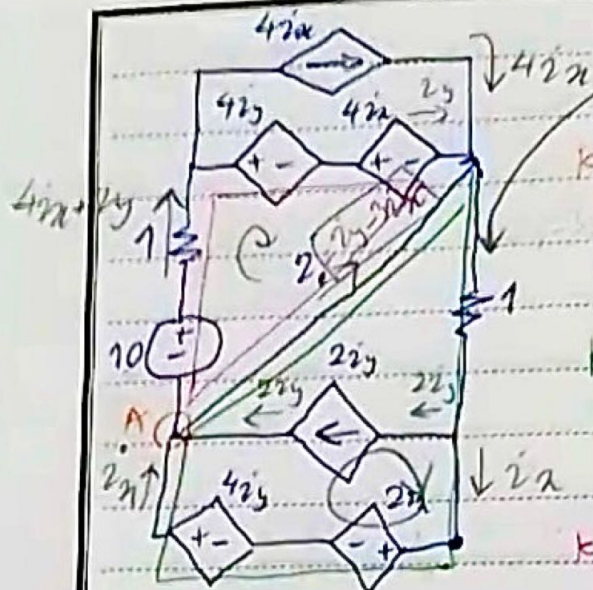 4ix
4ix
4iy
4ix
iy
+ -
+ -
4ix+iy
1
2
iy-3ix
1
+
-
10
2iy
2iy
2iy
A
ix
ix
4iy
2ix
+ -
- +